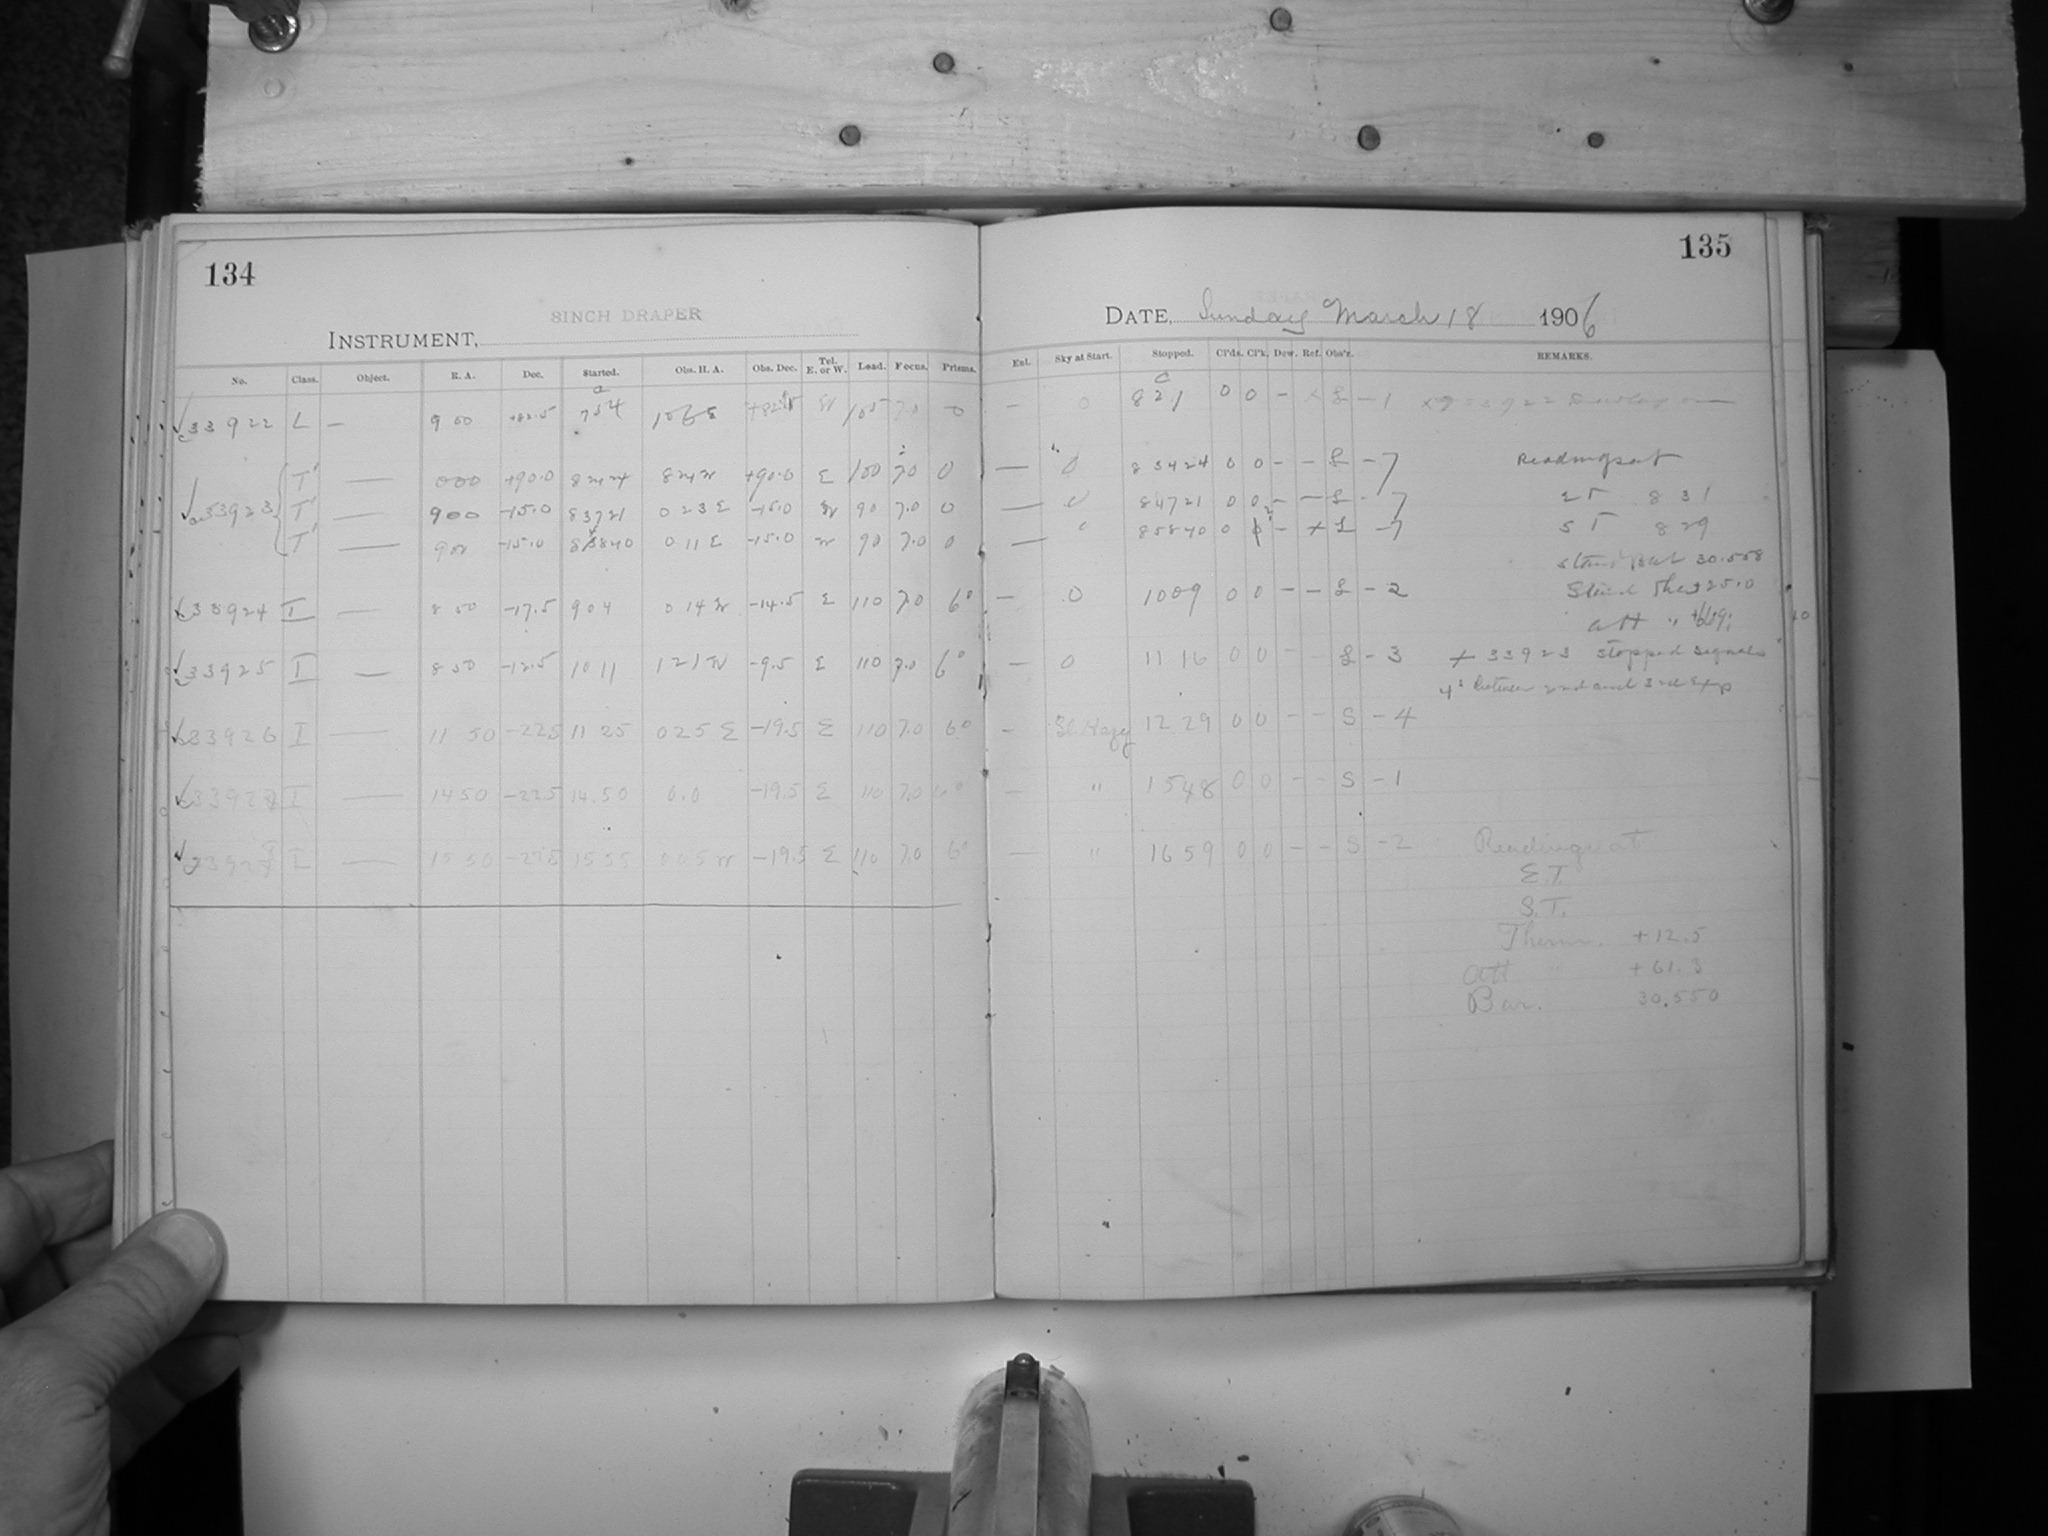 134
8INCH DRAPER
INSTRUMENT,
No. Class. Object. R. A. Dec. Started. Obs. H. A. Obs. Dec. Tel. E. or W. Lead. Focus. Prisms.
33922 L — 9 00 +82.5 754 +82.5 W 105 7.0 0
33923 T' — 000 +90.0 82424 824 W +90.0 E 100 7.0 0
T' — 900 -15.0 83721 0 23 E -15.0 W 90 7.0 0
T' — 900 -15.0 0 11 E -15.0 W 90 7.0 0
33924 I — 8 50 -17.5 904 0 14 W -14.5 E 110 7.0 6°
33925 I — 8 50 -12.5 10 11 1 21 W -9.5 E 110 7.0 6°
33926 I — 11 50 -22.5 11 25 0 25 E -19.5 E 110 7.0 6°
I — 14 50 -22.5 14.50 0.0 -19.5 E 110 7.0 6°
I — 15 50 -22.5 15 55 0 05 W -19.5 E 110 7.0 6°
135
DATE, Sunday March 18 1906
Ent. Sky at Start. Stopped. Cl'ds. Cl'k. Dew. Ref. Obs'r. REMARKS.
— 0 821 0 0 - × L - 1
— 0 83424 0 0 - - L - 7 Readings at
— 0 84721 0 0 - - L - 7 E T 8 31
— 85840 0 - × L - 7 S T 829
Stand Bar 30.558
— 0 1009 0 0 - - L - 2 25.0
att "
— 0 11 16 0 0 - - L - 3 × 33923 stopped signals
4s between 2nd and 3rd Exp
— Sl. Hazy 12 29 0 0 - - S - 4
— " 15 48 0 0 - - S - 1
— " 16 59 0 0 - - S - 2 Readings at
E.T.
S.T.
Therm. +12.5
Att " +61.3
Bar. 30.550